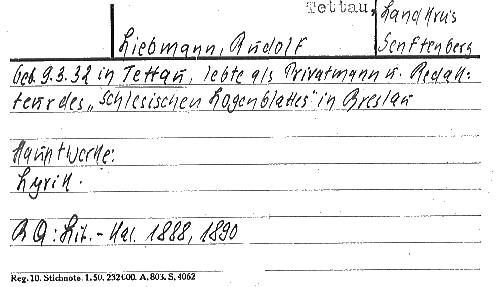 Tettau, Landkreis
Liebmann, Rudolf Senftenberg
geb. 9.3.32 in Tettau, lebte als Privatmann u. Redak-
teur des „Schlesischen Logenblattes" in Breslau
Hauptwerke:
Lyrik.
BQ: Lit.-Kal. 1888, 1890
Reg. 10. Stichnote. 1. 50. 232000. A. 803. S. 4062